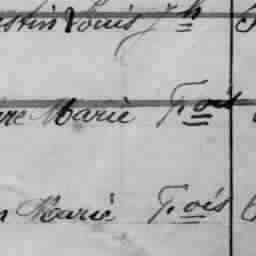 stin Louis Jh
re Marie F.ois
n Marie F.ois